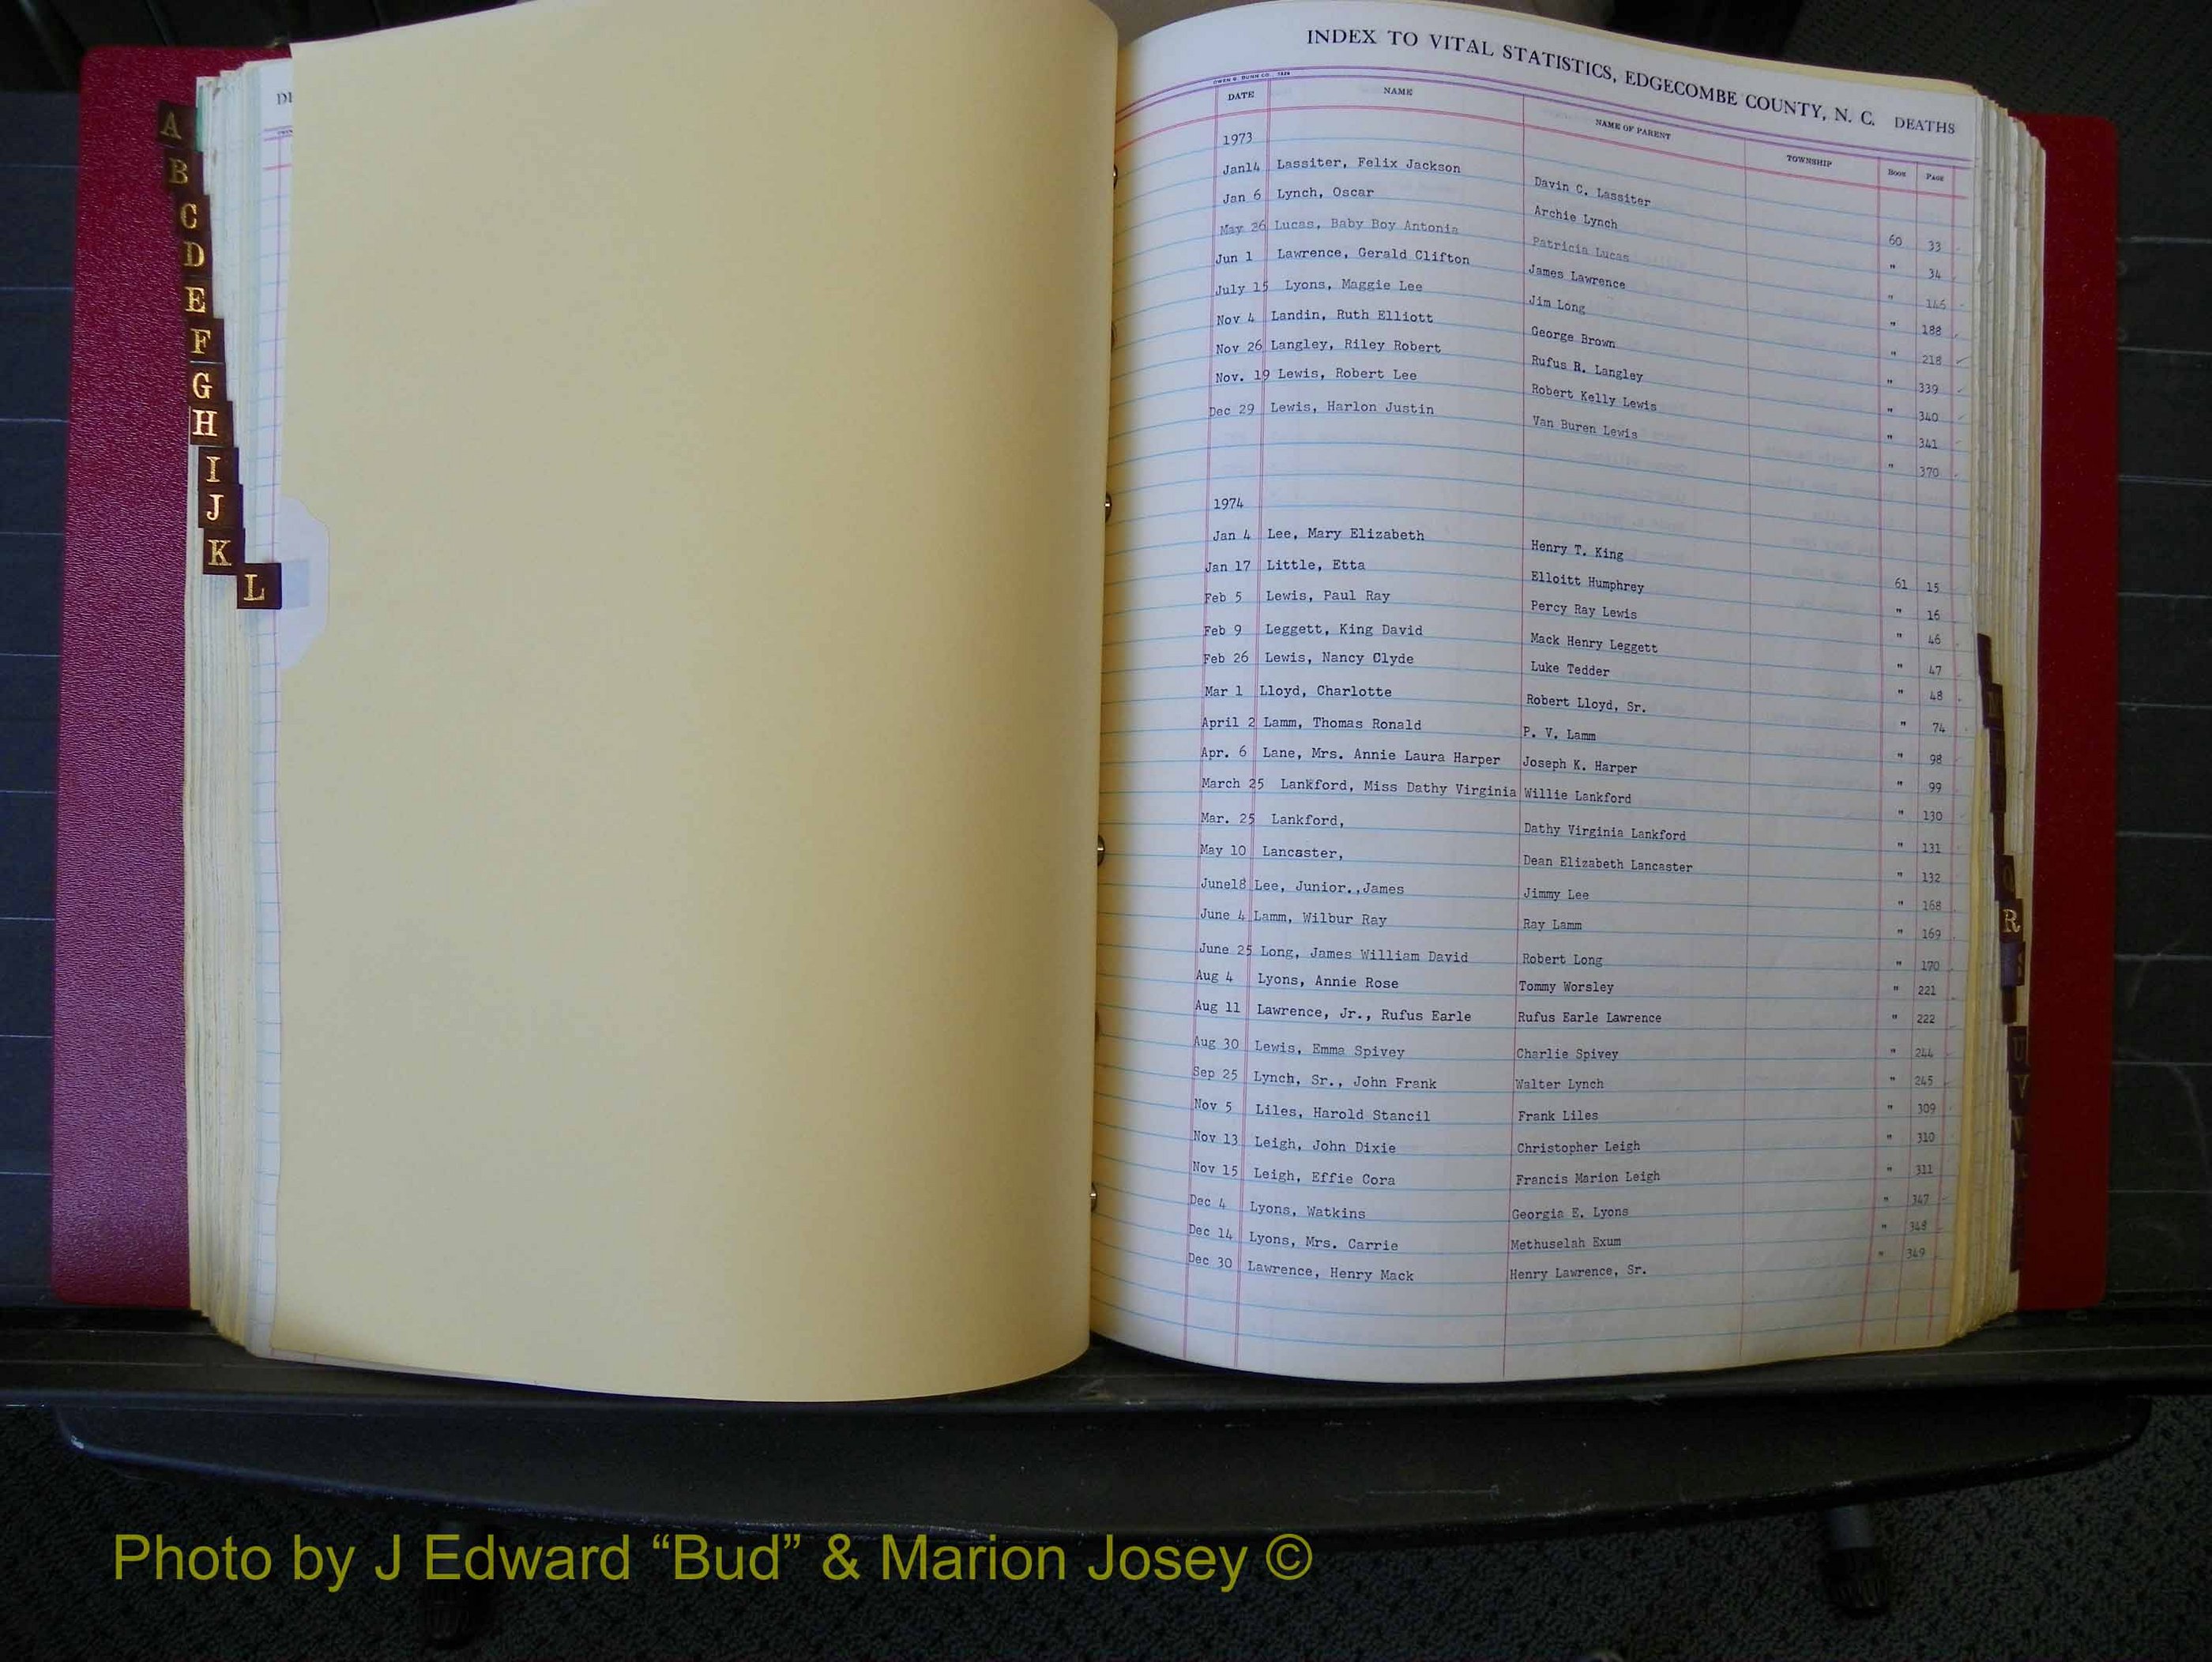 A
B
C
D
E
F
G
H
I
J
K
L
INDEX TO VITAL STATISTICS, EDGECOMBE COUNTY, N. C. DEATHS
OWEN G. DUNN CO.
DATE NAME NAME OF PARENT TOWNSHIP BOOK PAGE
1973
Jan14 Lassiter, Felix Jackson Davin C. Lassiter 60 33
Jan 6 Lynch, Oscar Archie Lynch " 34
May 26 Lucas, Baby Boy Antonia Patricia Lucas " 146
Jun 1 Lawrence, Gerald Clifton James Lawrence " 188
July 15 Lyons, Maggie Lee Jim Long " 218
Nov 4 Landin, Ruth Elliott George Brown " 339
Nov 26 Langley, Riley Robert Rufus R. Langley " 340
Nov. 19 Lewis, Robert Lee Robert Kelly Lewis " 341
Dec 29 Lewis, Harlon Justin Van Buren Lewis " 370
1974
Jan 4 Lee, Mary Elizabeth Henry T. King 61 15
Jan 17 Little, Etta Elloitt Humphrey " 16
Feb 5 Lewis, Paul Ray Percy Ray Lewis " 46
Feb 9 Leggett, King David Mack Henry Leggett " 47
Feb 26 Lewis, Nancy Clyde Luke Tedder " 48
Mar 1 Lloyd, Charlotte Robert Lloyd, Sr. " 74
April 2 Lamm, Thomas Ronald P. V. Lamm " 98
Apr. 6 Lane, Mrs. Annie Laura Harper Joseph K. Harper " 99
March 25 Lankford, Miss Dathy Virginia Willie Lankford " 130
Mar. 25 Lankford, Dathy Virginia Lankford " 131
May 10 Lancaster, Dean Elizabeth Lancaster " 132
June18 Lee, Junior.,James Jimmy Lee " 168
June 4 Lamm, Wilbur Ray Ray Lamm " 169
June 25 Long, James William David Robert Long " 170
Aug 4 Lyons, Annie Rose Tommy Worsley " 221
Aug 11 Lawrence, Jr., Rufus Earle Rufus Earle Lawrence " 222
Aug 30 Lewis, Emma Spivey Charlie Spivey " 244
Sep 25 Lynch, Sr., John Frank Walter Lynch " 245
Nov 5 Liles, Harold Stancil Frank Liles " 309
Nov 13 Leigh, John Dixie Christopher Leigh " 310
Nov 15 Leigh, Effie Cora Francis Marion Leigh " 311
Dec 4 Lyons, Watkins Georgia E. Lyons " 347
Dec 14 Lyons, Mrs. Carrie Methuselah Exum " 348
Dec 30 Lawrence, Henry Mack Henry Lawrence, Sr. " 349
Q
R
S
U
V
Photo by J Edward “Bud” & Marion Josey ©